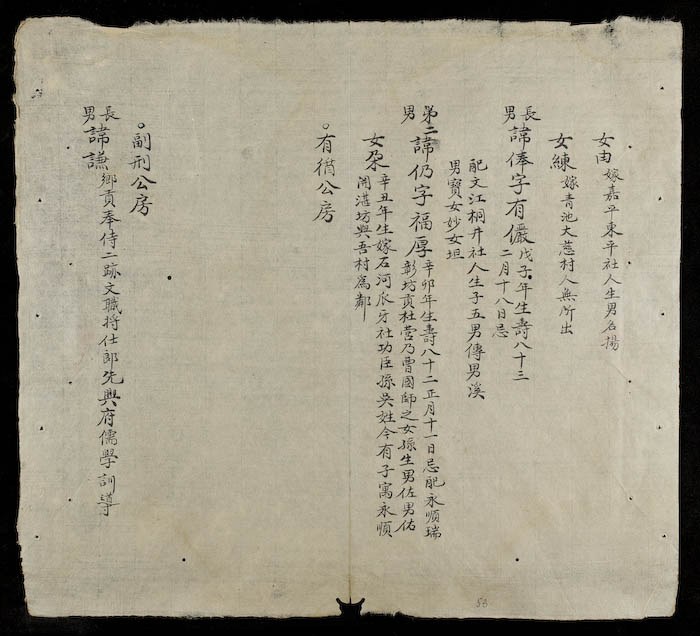 女由嫁嘉平東平社人生男名揚
女練嫁青池大慈村人無所出
長男諱俸字有儼戊子年生壽八十三
二月十八日忌
配文江桐井社人生子五男傳男溪
男寶女妙女垣
第二男諱仍字福厚辛卯年生壽八十二正月十一日忌配永順瑞
彰坊貢杜營乃曹國師之女孫生男佐男佑
女朶辛丑年生嫁石河瓜牙社功臣孫吳姓今有子寓永順
閉湛坊與吾村為鄰
○有䄎公房
○副刑公房
長男諱謙鄉貢奉侍二跡文職將仕郎先興府儒學訓導
58